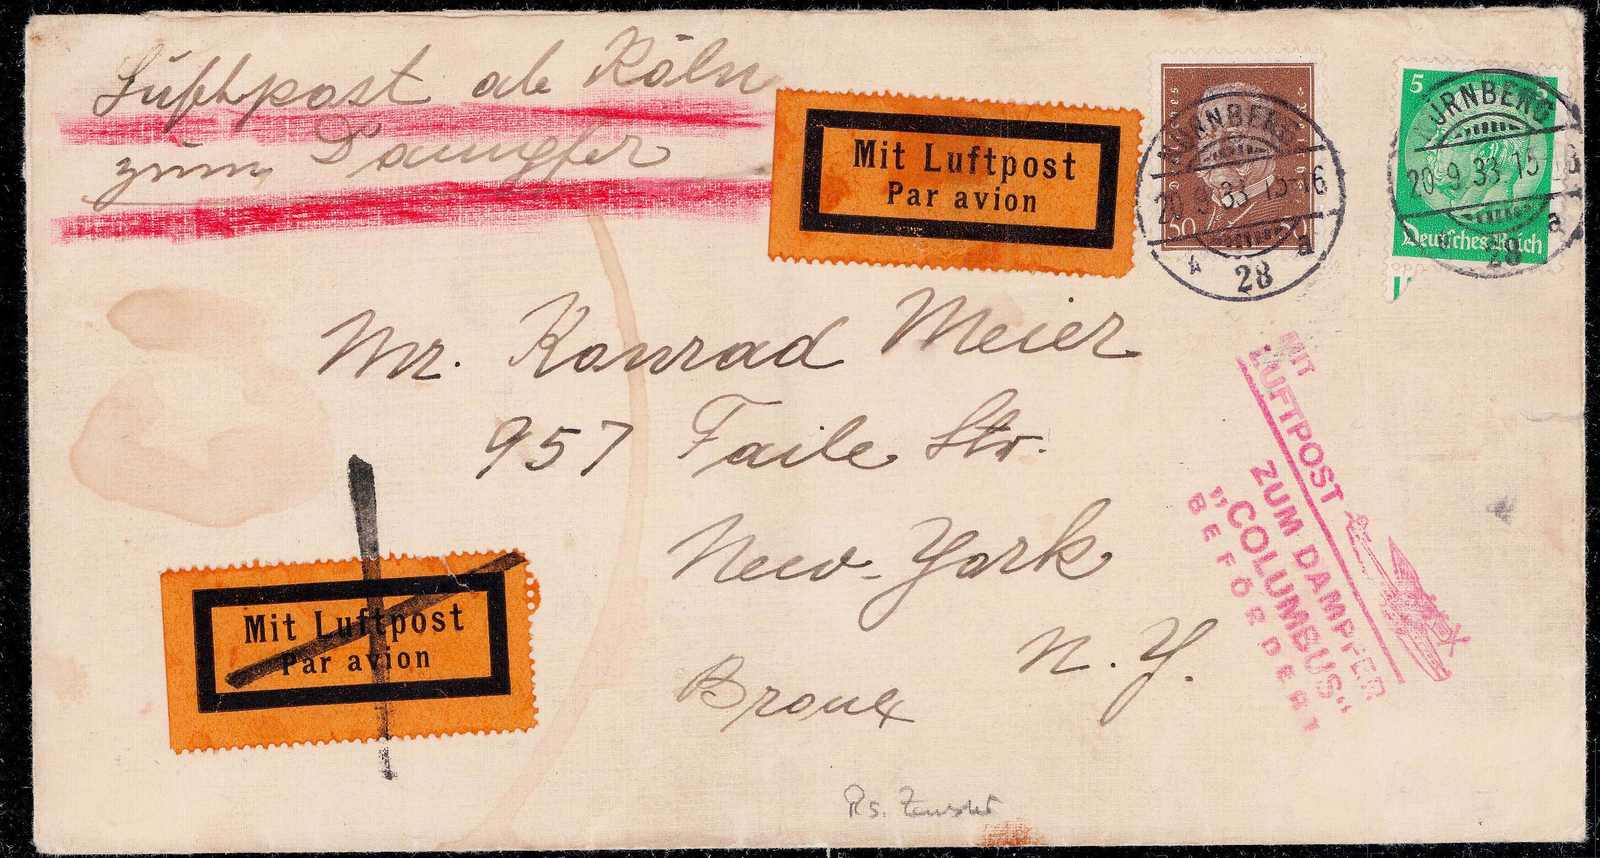 Luftpost ab Köln
zum Dampfer
Mit Luftpost
Par avion
50 50
NÜRNBERG
20.9.33.15-16
a
28
5
NÜRNBERG
20.9.33.15
a
28
Deutsches Reich
Mr. Konrad Meier
957 Faile Str.
New-York
N.Y.
Bronx
MIT
LUFTPOST
ZUM DAMPFER
"COLUMBUS"
BEFÖRDERT
Mit Luftpost
Par avion
Rs.